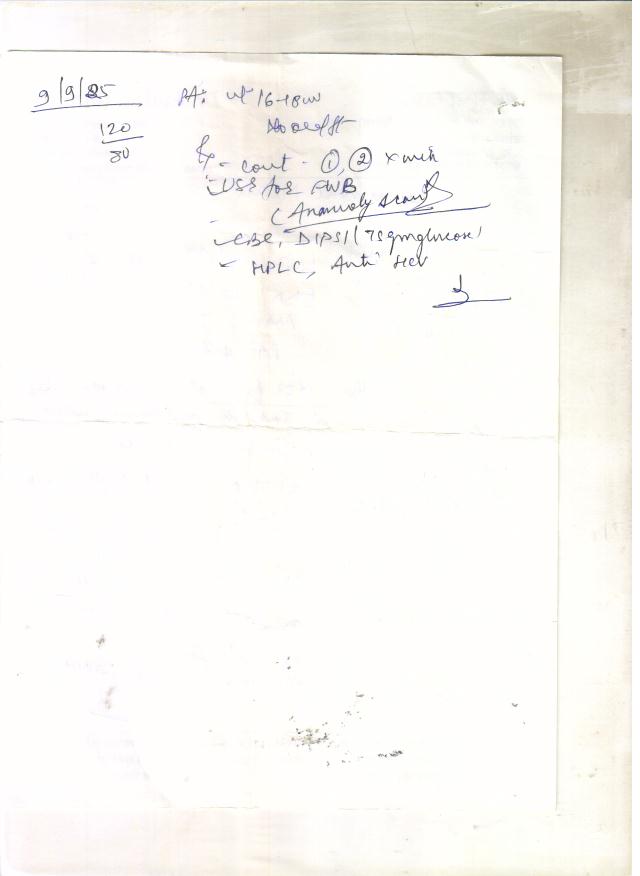 9/9/25
120
80
PA: ut 16-18w
Rx - cont - ①, ② x
- USS for FWB
- (Anamoly scan)
- CBC, DIPSI (75gmglucose)
- HPLC, Anti HCV